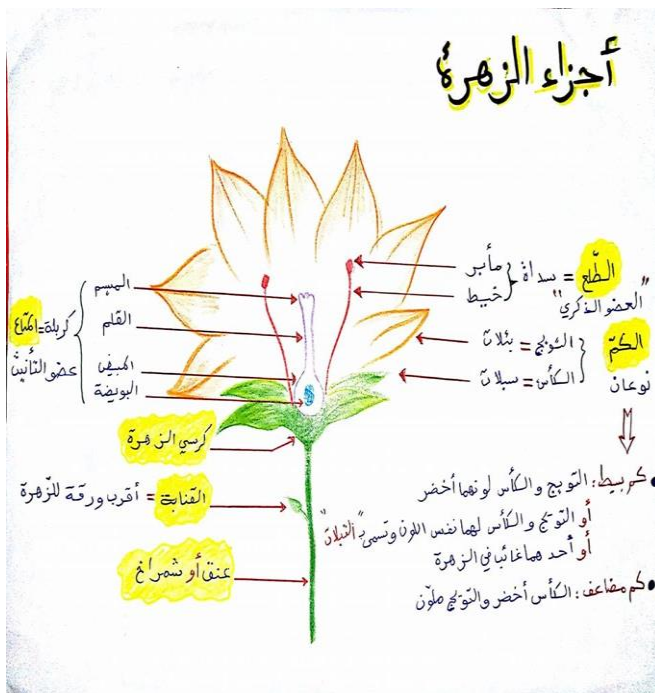 أجزاء الزهرة
الطّلع = سداة
مأبر
خيط
"العضو الذكري"
الكمّ
نوعان
التويج = بتلات
الكأس = سبلات
الميسم
القلم
المبيض
البويضة
كربلة = المتاع
عضو التأنيث
كرسي الزهرة
القنابة = أقرب ورقة للزّهرة
عنق أو شمراخ
كم بسيط: التويج والكأس لونهما أخضر
أو التويج والكأس لهما نفس اللون وتسمى بـ "التبلات"
أو أحدهما غائب في الزهرة
كم مضاعف: الكأس أخضر والتويج ملوّن